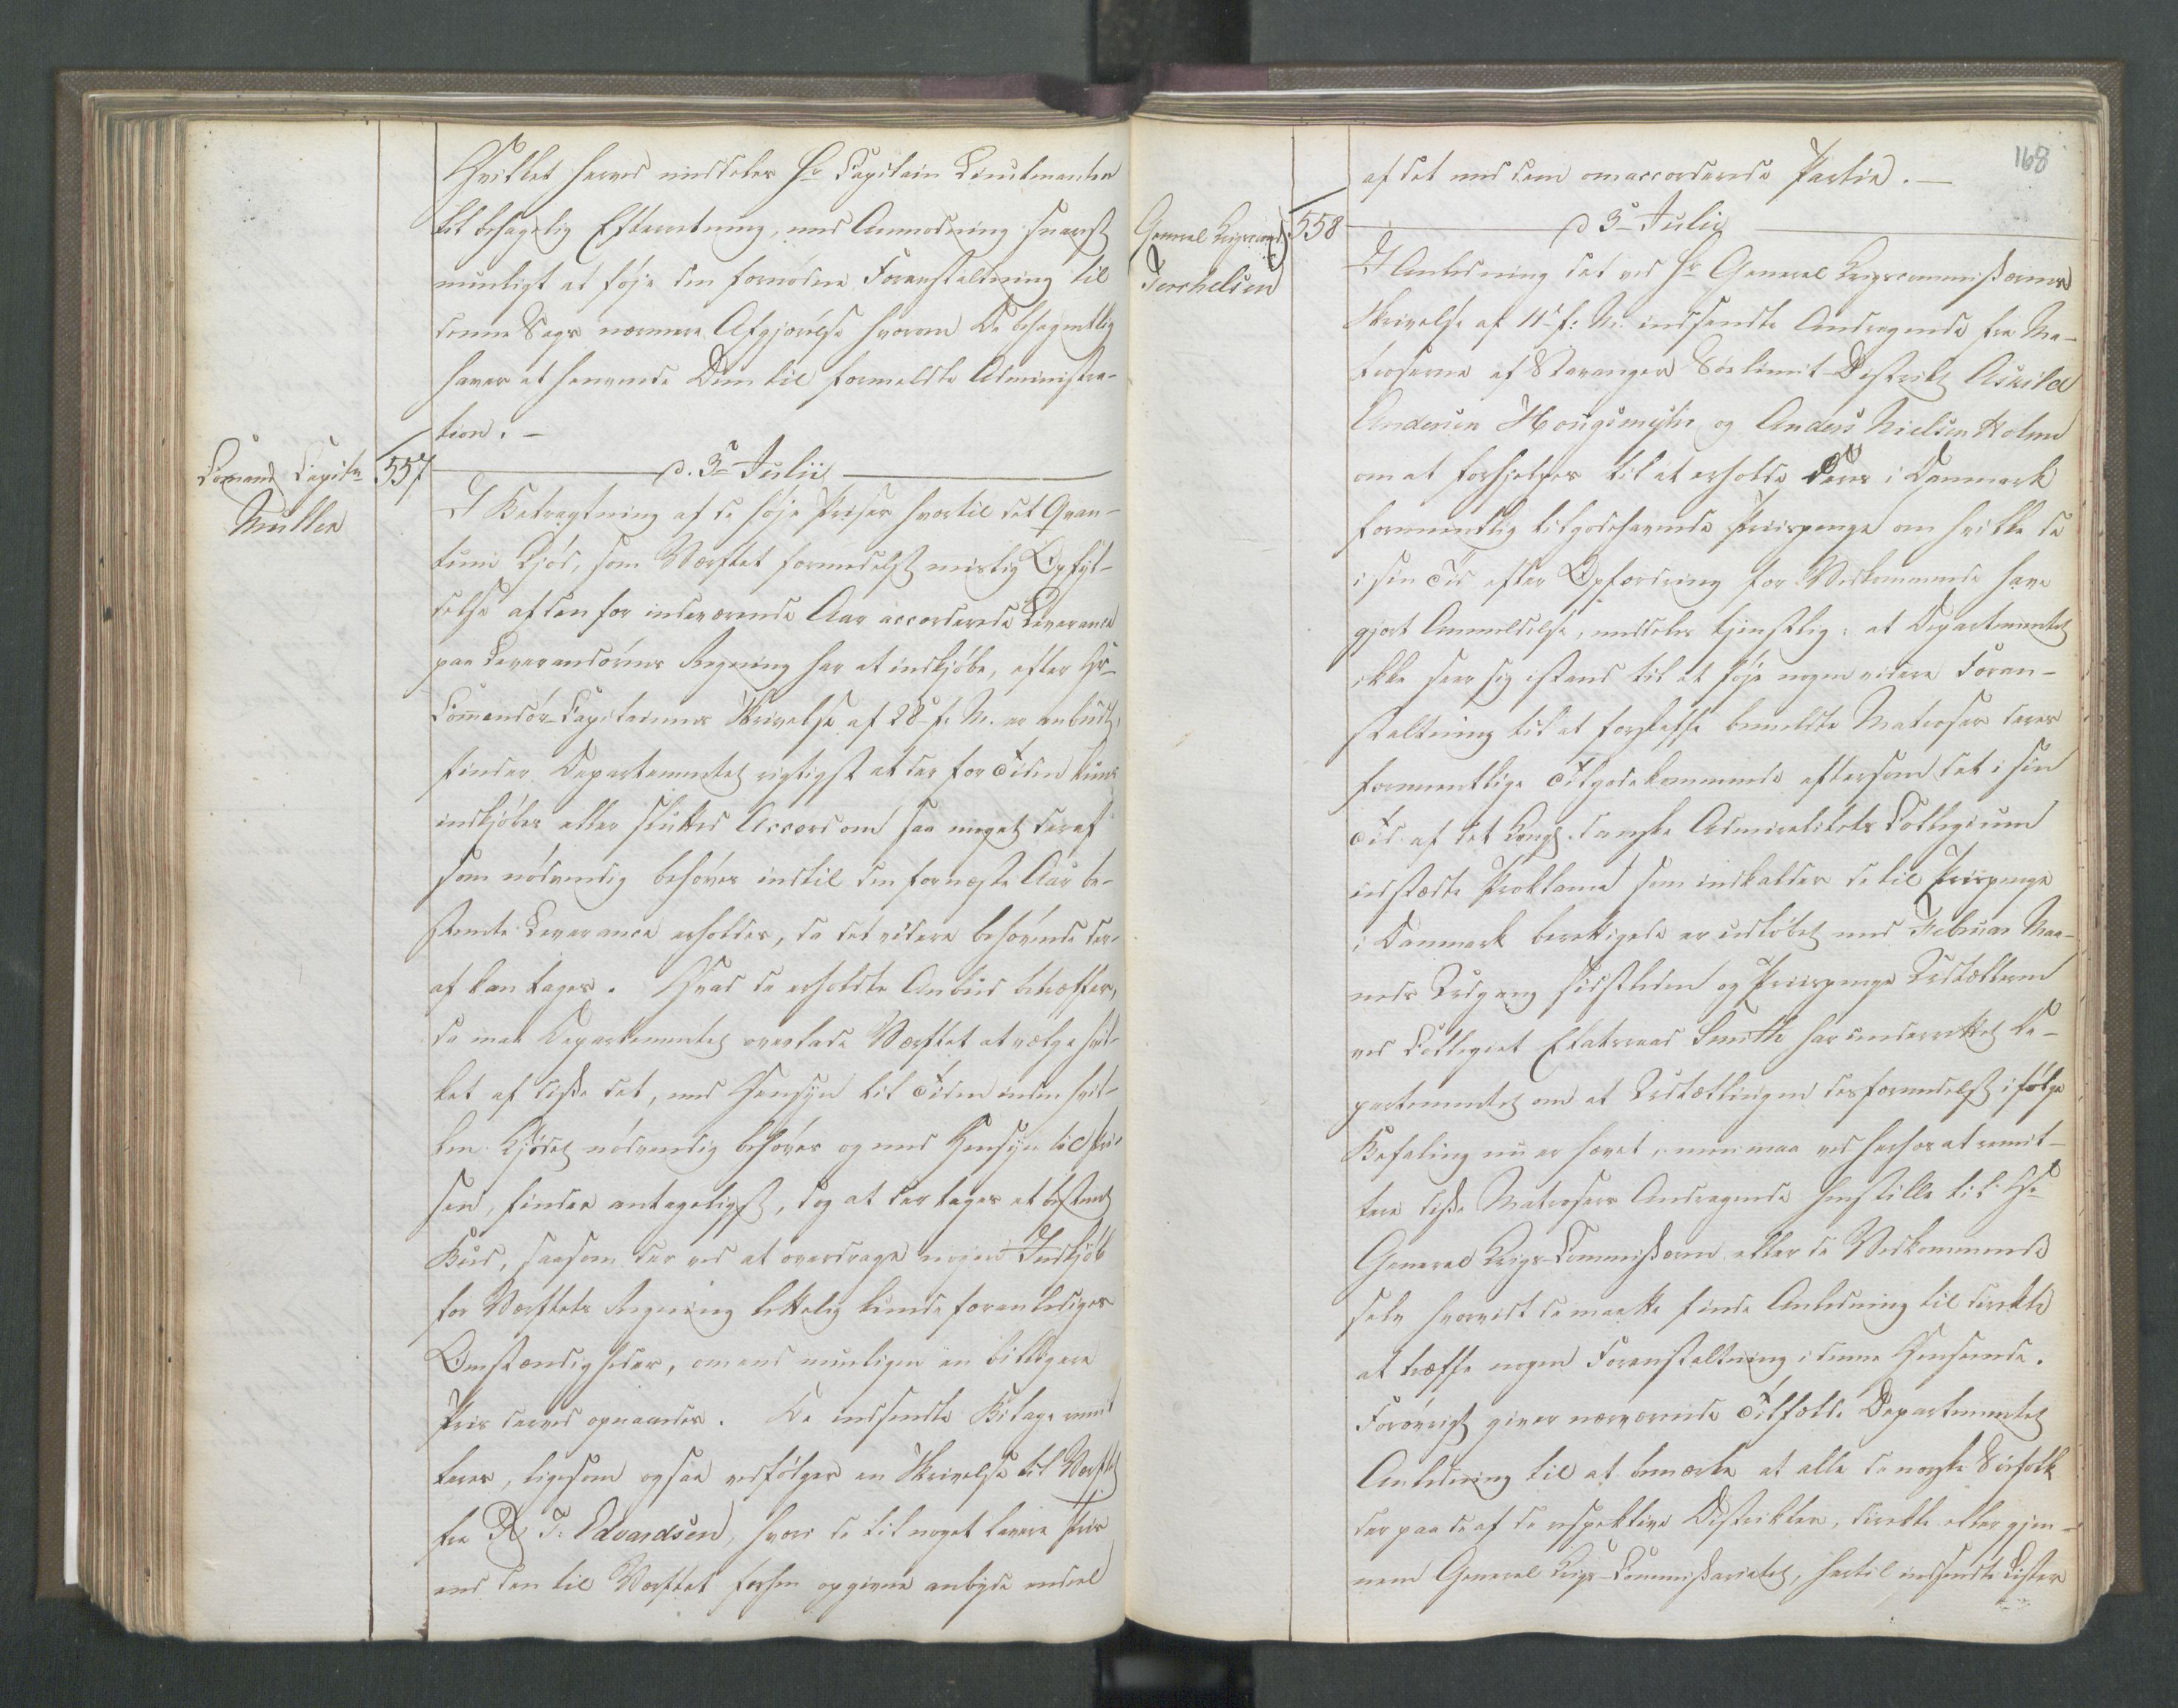 Hvilket herved meddeles Hr Capitain Lieutenanten
til behagelig Efterretning, med Anmodning snarest
mueligt at föje den fornödne Foranstaltning til
denne Sags nærmere Afgjörelse hvorom De behagentlig
haver at henvende Dem til formeldte Administra-
tion. -
Comand Capitn
Müller
557
d. 3 Julii
I Betragtning af de höje Priser hvortil det Qvan-
tum Kjöd, som Værftet formedelst mislig Opfyl-
delse af den for indeværende Aar accorderede Leverance
paa Leverandörens Regning har at indkjöbe, efter Hr
Commandör-Capitainens Skrivelse af 28 f. M. er anbudt,
finder Departementet rigtigst at der for Tiden kuns
indkjöbes eller sluttes Accord om saa meget deraf
som nödvendig behöves indtil den for næste Aar be-
stemte Leverance erholdes, da det videre behövende der-
af kan tages. Hvad de erholdte Anbud betræffer,
da maa Departementet overlade Værftet at vælge hvil-
ket af disse det, med Hensyn til Tiden inden hvil-
ken Kjödet nödvendig behöves og med Hensyn til Pri-
sen, finder antageligst, dog at der tages et bestemt
Bud, saasom der ved at overdrage nogen Indkjöb
for Værftets Regning lettelig kunde foranlediges
Omstændigheder, om end mueligen en billigere
Pris derved opnaaedes. De indsendte Bilage remit
teres, ligesom ogsaa vedfölger en Skrivelse til Værftet
fra R J. Edvardsen, hvori de til noget lavere Pris
end den til Værftet forhen opgivne anbyde endeel
168
af det med dem omaccorderede Partie. -
General Krigscomd.
Torchelsen
558
d 3 Julii
I Anledning det ved Hr General Krigscommissairens
Skrivelse af 11 f: M. indsendte Andragende fra Ma-
troserne af Stavanger Söe limit-Distrikt Askild
Andersen Hougsmyhr og Anders Nielsen Holme
om at forhjelpes til at erholde deres i Danmark
formeentlig tilgodehavende Priispenge om hvilke de
i sin Tid efter Opfordring for Vedkommende have
gjort Anmeldelse, meddeles tjenstlig: at Departementet
ikke seer sig istand til at föje nogen videre Foran-
staltning til at forskaffe bemeldte Matroser deres
formeentlige Tilgodekommende eftersom det i sin
Tid af det Kongl. danske Admiralitets Collegium
udstædte Proklama som indkalder de til Priispenge
i Danmark berettigede er udlöbet med Februar Maa-
neds Udgang sidstleden og Priispenge Udtælleren
ved Collegiet Etatsraad Smith har underrettet De-
partementet om at Udtællingen desformedelst ifölge
Befaling nu er hævet, men maa ved herhos at remit-
tere disse Matrosers Andragende henstille til Hr
General Krigs-Commissairen eller de Vedkommende
selv hvorvidt de maatte finde Anledning til direkte
at træffe nogen Foranstaltning i denne Henseende.
Forövrigt giver nærværende Tilfælde Departementet
Anledning til at bemærke at alle de norske Söefolk
der paa de af de respektive Distrikter, direkte eller gjen-
nem General Krigs-Commissariatet, hertil indsendte Lister